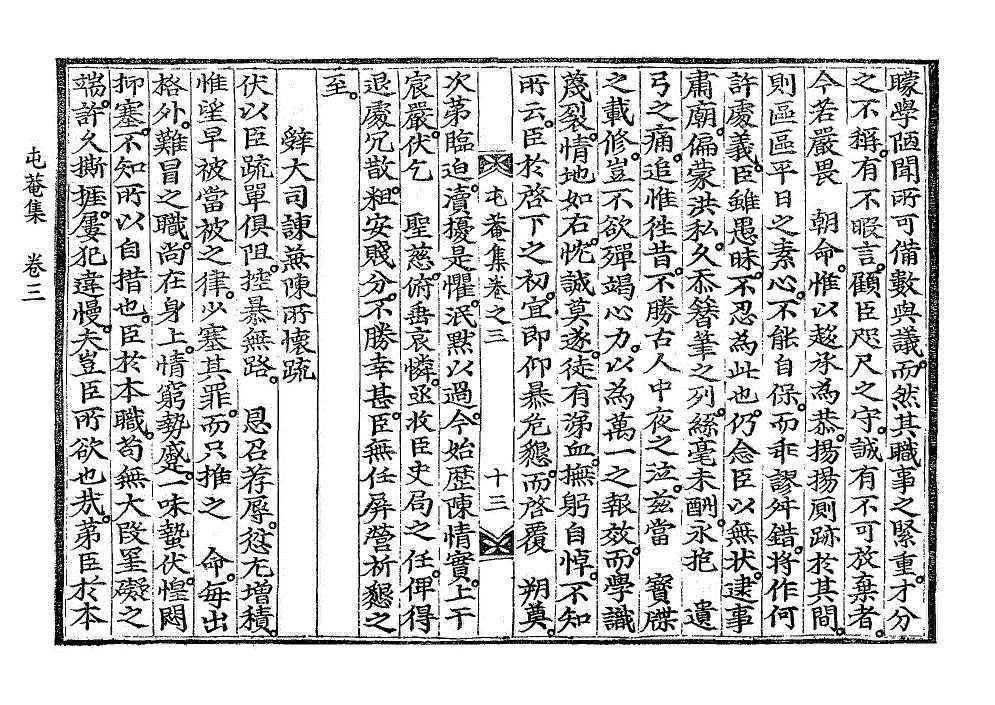 矇學陋聞所可備數與議而然其職事之緊重才分
之不稱有不暇言顧臣咫尺之守誠有不可放棄者
今若嚴畏 朝命惟以趍承爲恭揚揚廁跡於其間
則區區平日之素心不能自保而乖謬舛錯將作何
許處義臣雖愚昧不忍爲此也仍念臣以無狀逮事
肅廟偏蒙洪私久忝簪筆之列絲毫未酬永抱 遺
弓之痛追惟徃昔不勝古人中夜之泣玆當 寶牒
之載修豈不欲殫竭心力以爲萬一之報效而學識
蔑裂情地如右忱誠莫遂徒有涕血撫躬自悼不知
所云臣於啓下之初宜卽仰暴危懇而啓覆 朔奠
屯菴集卷之三 十三
次第臨迫瀆擾是懼泯默以過今始歷陳情實上干
宸嚴伏乞 聖慈俯垂哀憐亟收臣史局之任俾得
退處冗散粗安賤分不勝幸甚臣無任屛營祈懇之
至
辭大司諫兼陳所懷疏
伏以臣疏單俱阻控暴無路 恩召荐辱愆尤增積
惟望早被當被之律以塞其罪而只推之 命每出
格外難冒之職尙在身上情窮勢蹙一味蟄伏惶悶
抑塞不知所以自措也臣於本職苟無大段罣礙之
端許久撕捱屢犯違慢夫豈臣所欲也哉第臣於本
屯菴集 卷三